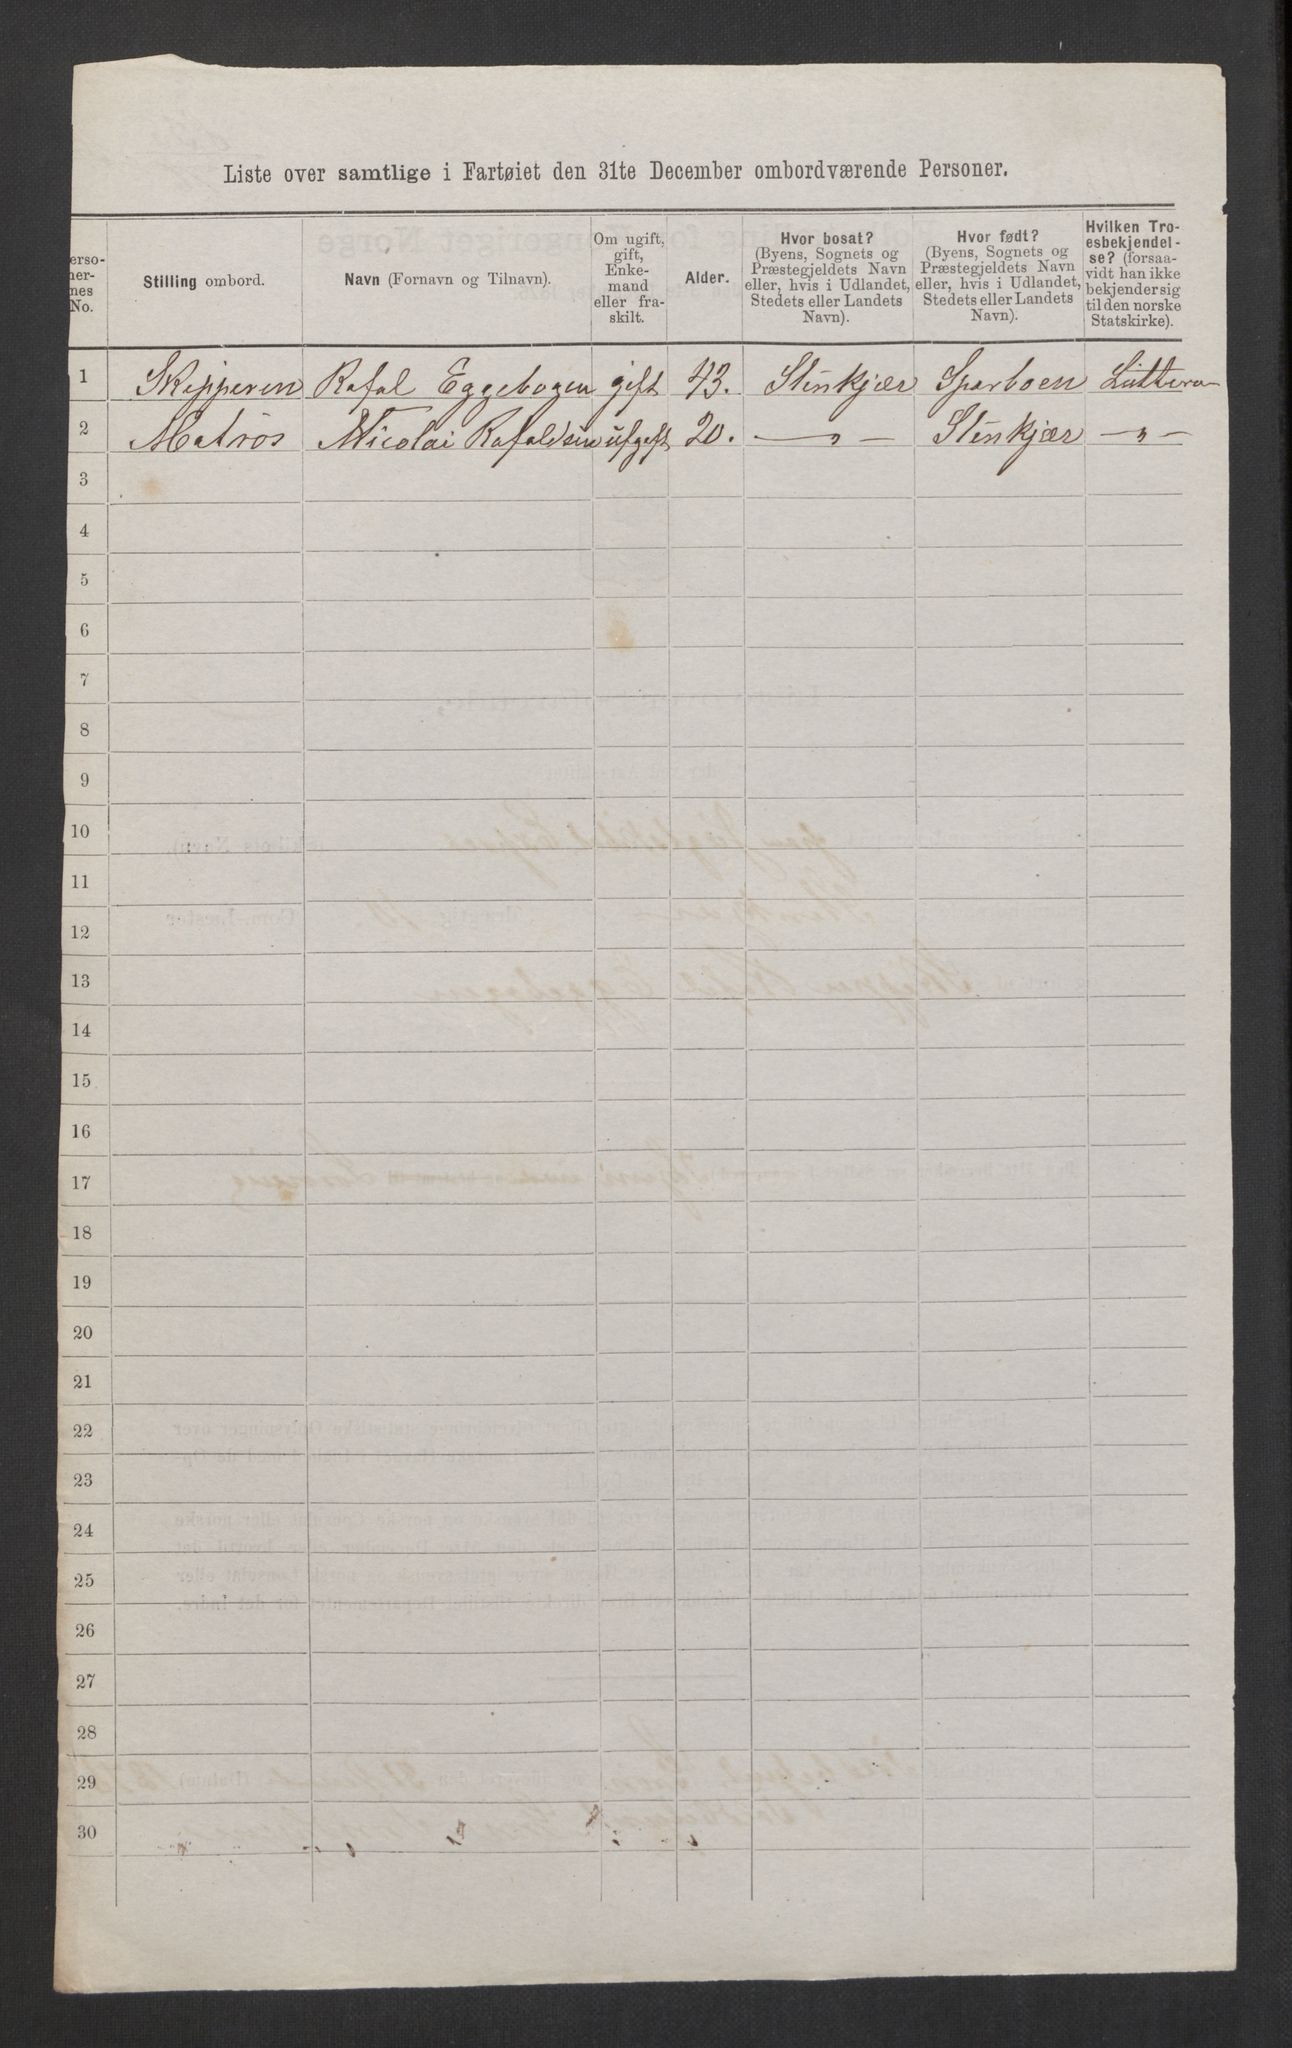 Liste over samtlige i Fartøiet den 31te December ombordværende Personer.
erso-
ner-
nes
No.
Stilling ombord.
Navn (Fornavn og Tilnavn).
Om ugift,
gift,
Enke-
mand
eller fra-
skilt.
Alder.
Hvor bosat?
(Byens, Sognets og
Præstegjeldets Navn
eller, hvis i Udlandet,
Stedets eller Landets
Navn).
Hvor født?
(Byens, Sognets og
Præstegjeldets Navn
eller, hvis i Udlandet,
Stedets eller Landets
Navn).
Hvilken Tro-
esbekjendel-
se? (forsaa-
vidt han ikke
bekjender sig
til den norske
Statskirke).
1 Skipperen Rafal Eggebogen gift 43. Stenkjær Sparboen Luttera
2 Matros Nicolai Rafaldsen ufgeft 20. — " — Stenkjær — " —
3
4
5
6
7
8
9
10
11
12
13
14
15
16
17
18
19
20
21
22
23
24
25
26
27
28
29
30